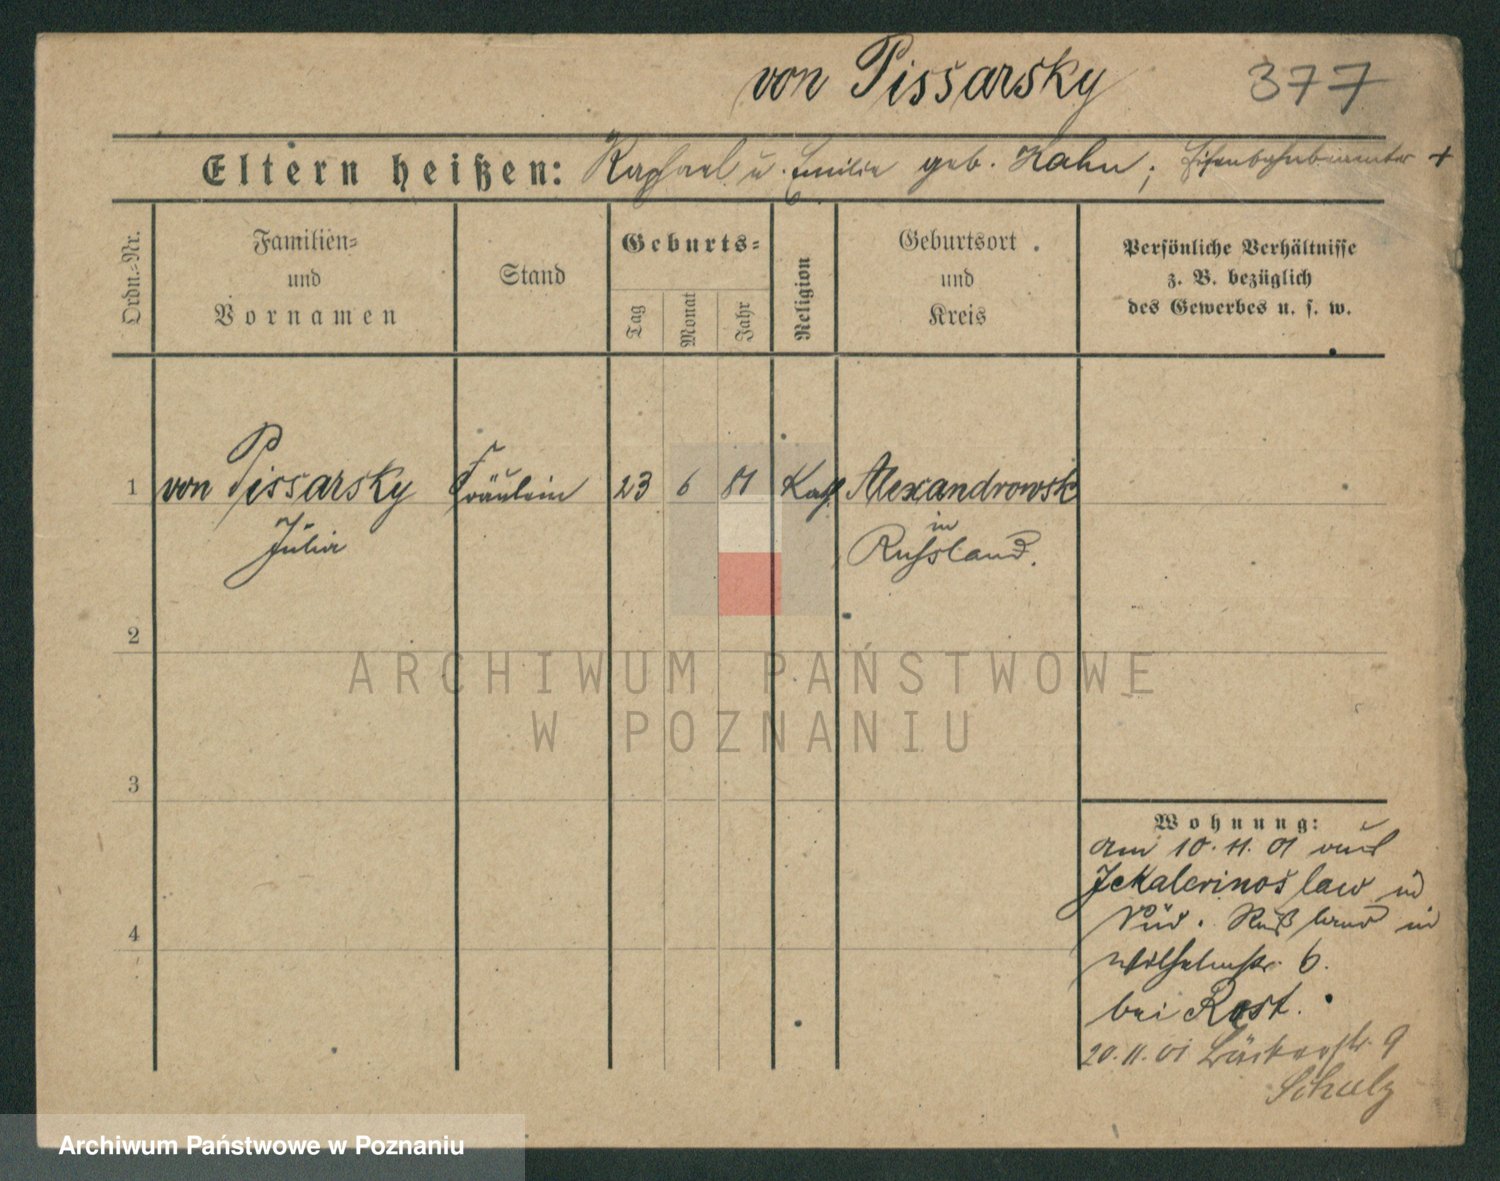 von Pissarsky 377
Eltern heißen: Raphael u. Emilie geb. Hahn; Eisenbahnbeamter +
Ordn.=Nr.
Familien=
und
Vornamen
Stand
Geburts=
Tag
Monat
Jahr
Religion
Geburtsort
und
Kreis
Persönliche Verhältnisse
z. B. bezüglich
des Gewerbes u. s. w.
1 von Pissarsky Fräulein 23 6 81 Kath Alexandrowsk
Julia
in
Russland.
2
3
4
ARCHIWUM PAŃSTWOWE
W POZNANIU
Wohnung:
am 10. 11. 01 aus
Jekaterinoslaw in
Süd. Rußland in
Wilhelmstr. 6.
bei Rost.
20. 11. 01 Bäckerstr. 9
Schulz
Archiwum Państwowe w Poznaniu